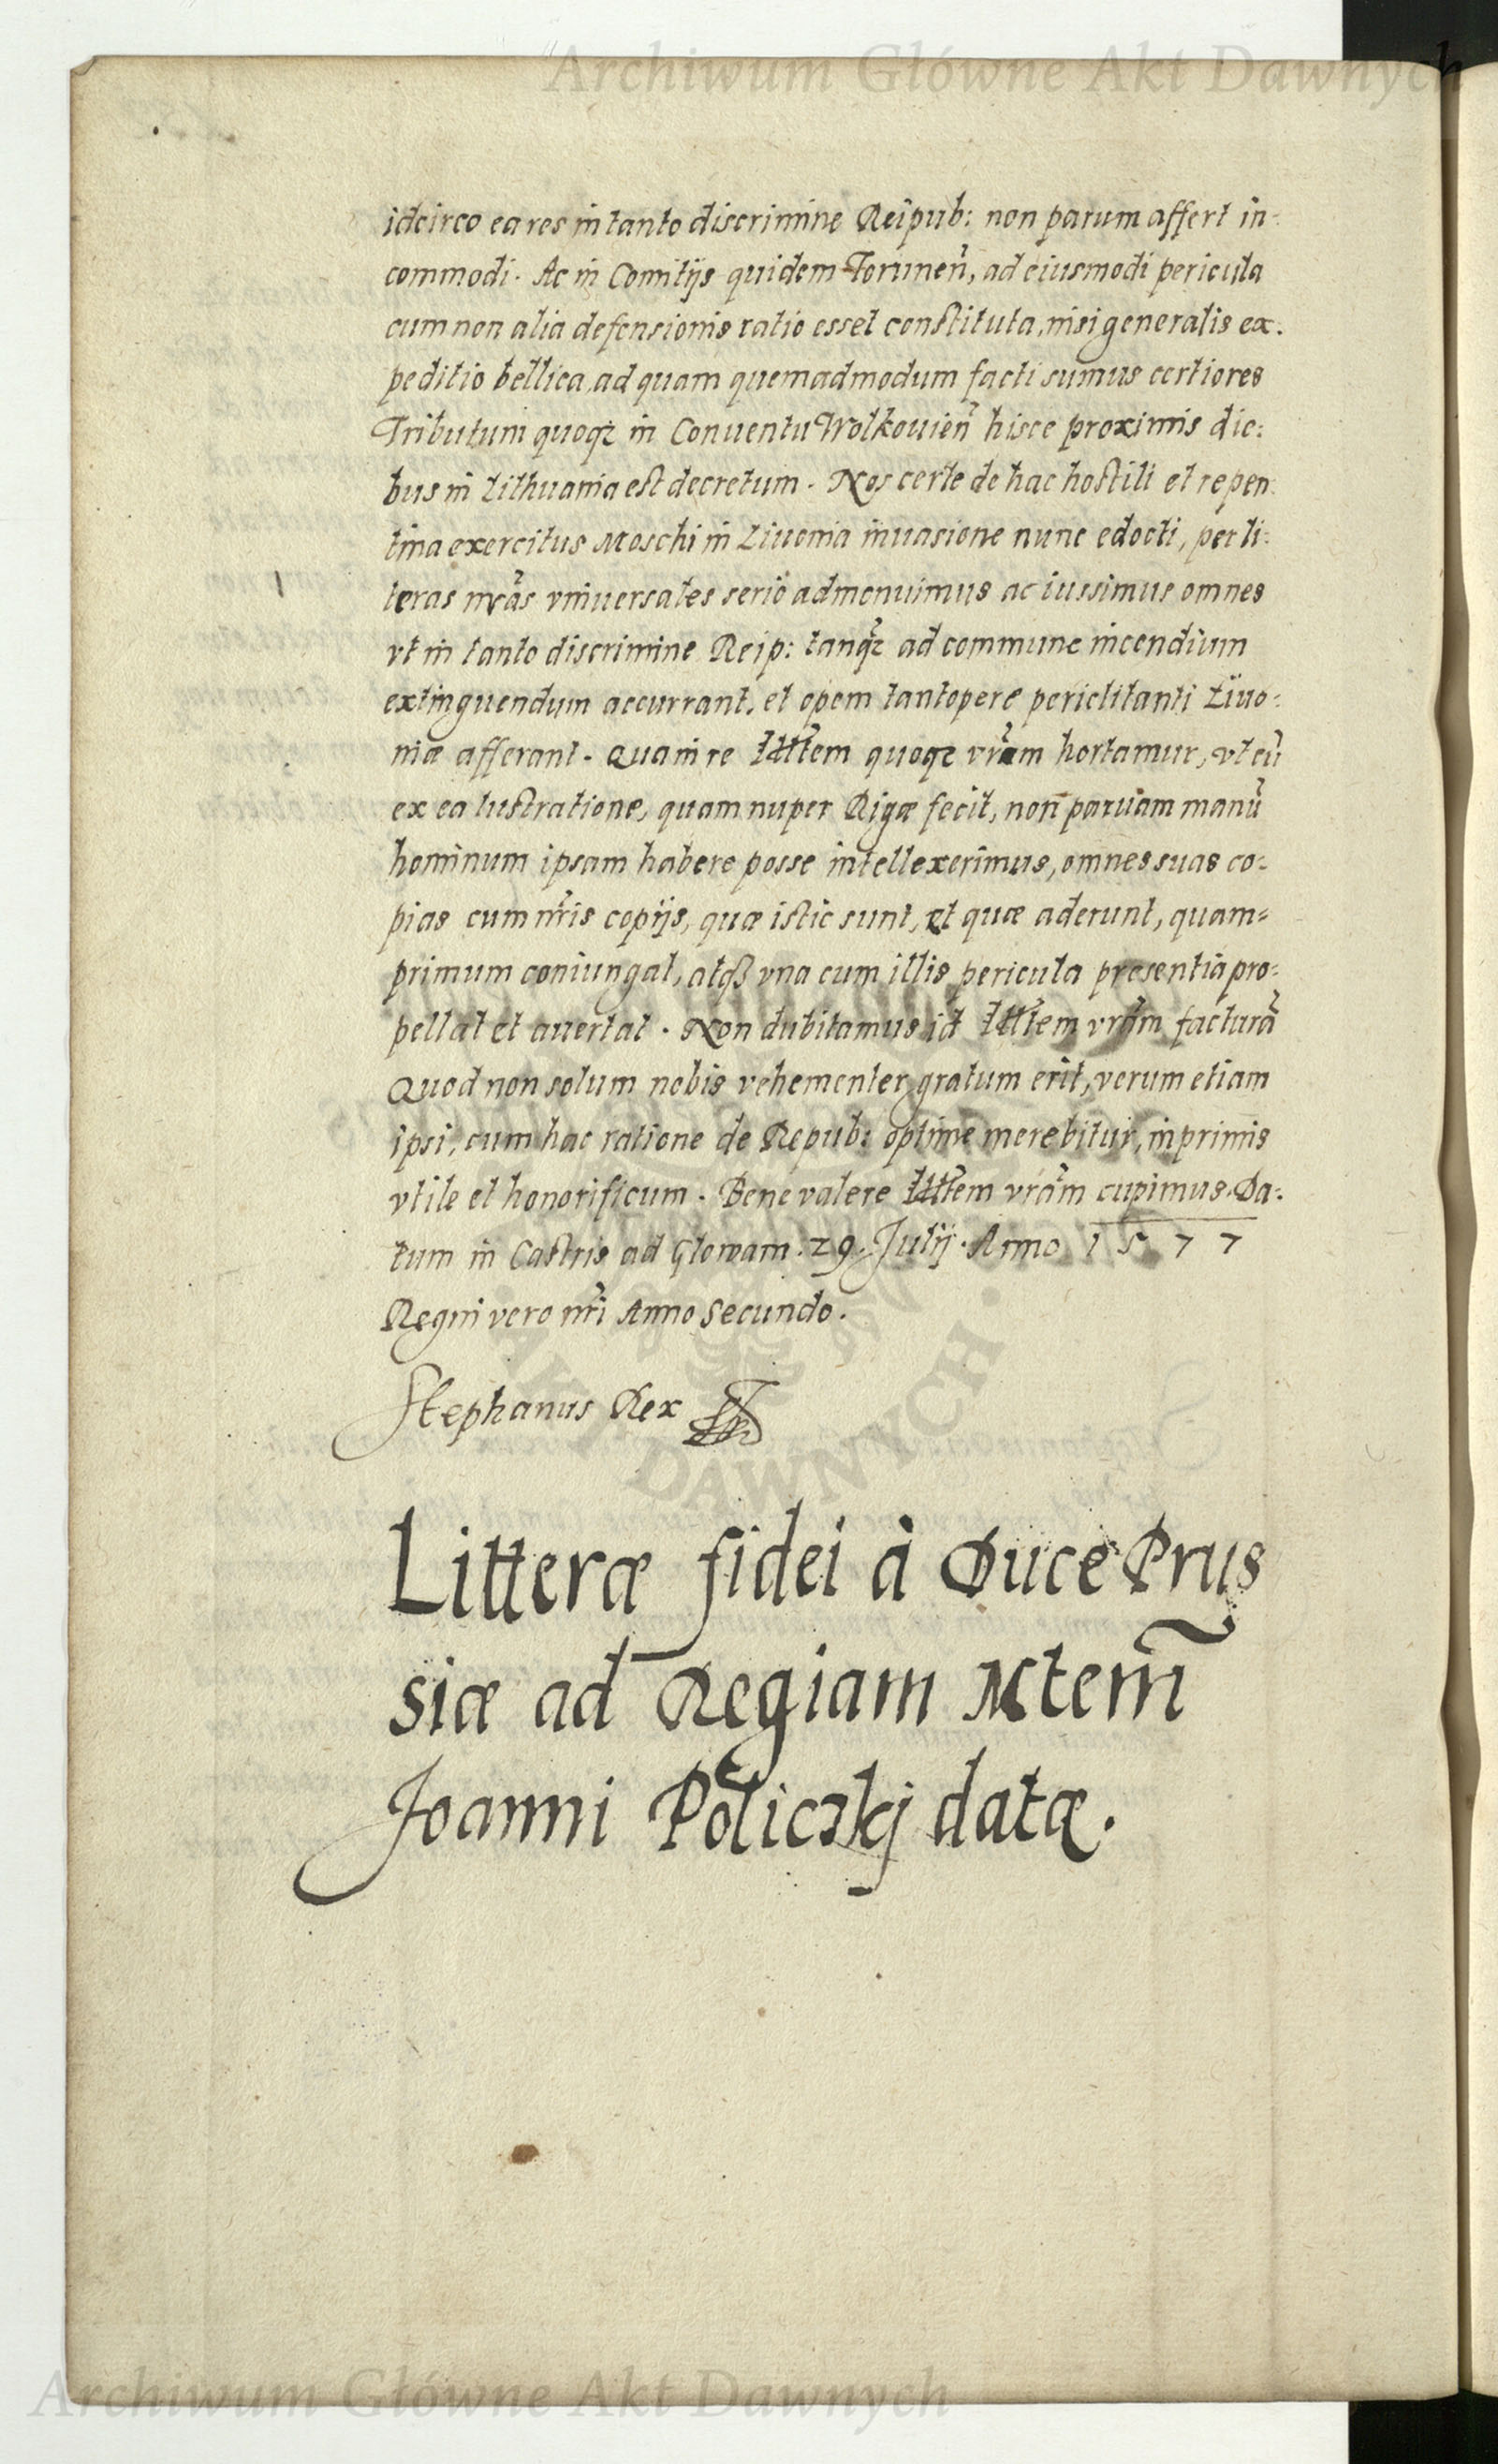 Archiwum Główne Akt Dawnych
idcirco ea res in tanto discrimine Reipub: non parum affert in-
commodi. Ac in Comitijs quidem Torunen̄, ad eiusmodi pericula
cum non alia defensionis ratio esset constituta, nisi generalis ex.
peditio bellica, ad quam quemadmodum facti sumus certiores
Tributum quoqꝫ in Conuentu Wolkouien̄ hisce proximis die:
bus in Lithuania est decretum. Nos certe de hac hostili et repen
tina exercitus Moschi in Liuonia inuasione nunc edocti, per li:
teras nr̃as vniuersales serio admonuimus ac iussimus omnes
vt in tanto discrimine Reip: tanqꝫ ad commune incendium
extinguendum accurrant, et opem tantopere periclitanti Liuo:
niæ afferant. Qua in re Illtr̃em quoqꝫ vr̃am hortamur, vt cū
ex ea lustratione, quam nuper Rigæ fecit, non paruam manū
hominum ipsam habere posse intellexerimus, omnes suas co-
pias cum nr̃is copijs, quæ istic sunt, et quæ aderunt, quam=
primum coniungat, atqꝫ vna cum illis pericula presentia pro-
pellat et auertat. Non dubitamus id Illtr̃em vr̃am facturā
Quod non solum nobis vehementer gratum erit, verum etiam
ipsi, cum hac ratione de Repub: optime merebitur, inprimis
vtile et honorificum. Bene valere Illtr̃em vr̃am cupimus. Da:
tum in Castris ad Glowam. 29. Julij. Anno 1577
Regni vero nr̃i Anno Secundo.
Stephanus Rex
AKT DAWNYCH
Litteræ fidei à Duce Prus
siæ ad Regiam Mtem̃
Joanni Policzkj datæ.
Archiwum Główne Akt Dawnych